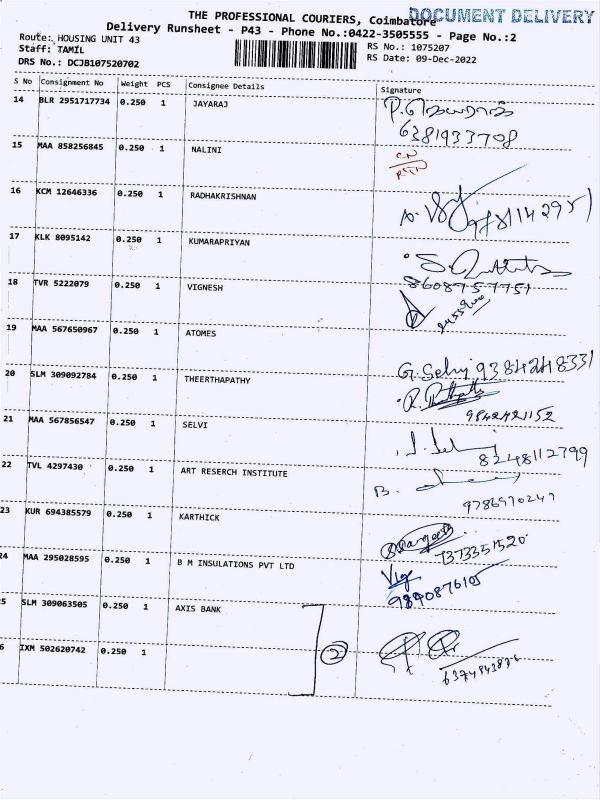 THE PROFESSIONAL COURIERS, Coimbatore
DOCUMENT DELIVERY
Delivery Runsheet - P43 - Phone No.:0422-3505555 - Page No.:2
Route: HOUSING UNIT 43
RS No.: 1075207
Staff: TAMIL
RS Date: 09-Dec-2022
DRS No.: DCJB107520702
S No Consignment No Weight PCS Consignee Details Signature
14 BLR 2951717734 0.250 1 JAYARAJ
6381933708
15 MAA 858256845 0.250 1 NALINI
16 KCM 12646336 0.250 1 RADHAKRISHNAN
17 KLK 8095142 0.250 1 KUMARAPRIYAN
8608757751
18 TVR 5222079 0.250 1 VIGNESH
19 MAA 567650967 0.250 1 ATOMES
G. Selvi 9384248331
20 SLM 309092784 0.250 1 THEERTHAPATHY
9842421152
21 MAA 567856547 0.250 1 SELVI
8248112799
22 TVL 4297430 0.250 1 ART RESERCH INSTITUTE
B.
9786970247
23 KUR 694385579 0.250 1 KARTHICK
7373351520
24 MAA 295028595 0.250 1 B M INSULATIONS PVT LTD
9840876105
5 SLM 309063505 0.250 1 AXIS BANK
2
6 IXM 502620742 0.250 1